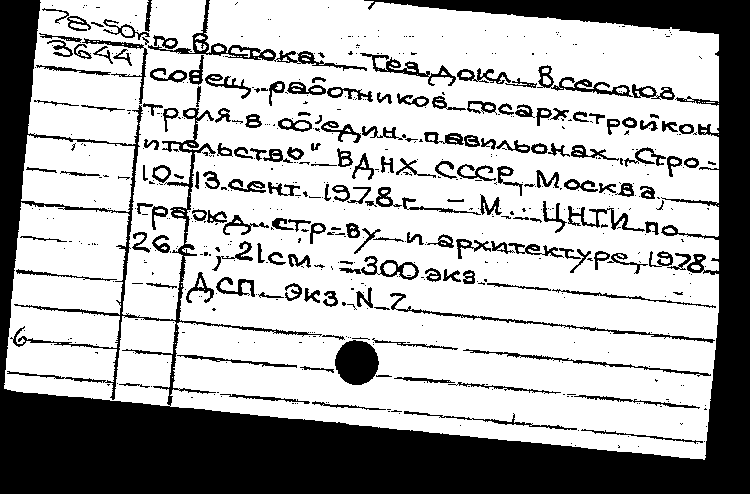 78-50
3644
го Востока: Тез. докл. Всесоюз.
совещ. работников госархстройкон-
троля в объедин. павильонах „Стро-
ительство" ВДНХ СССР, Москва,
10-13 сент. 1978 г. - М.: ЦНТИ по
гражд. стр-ву и архитектуре, 1978.-
26 с.; 21 см. - 300 экз.
ДСП. Экз. N 2
6